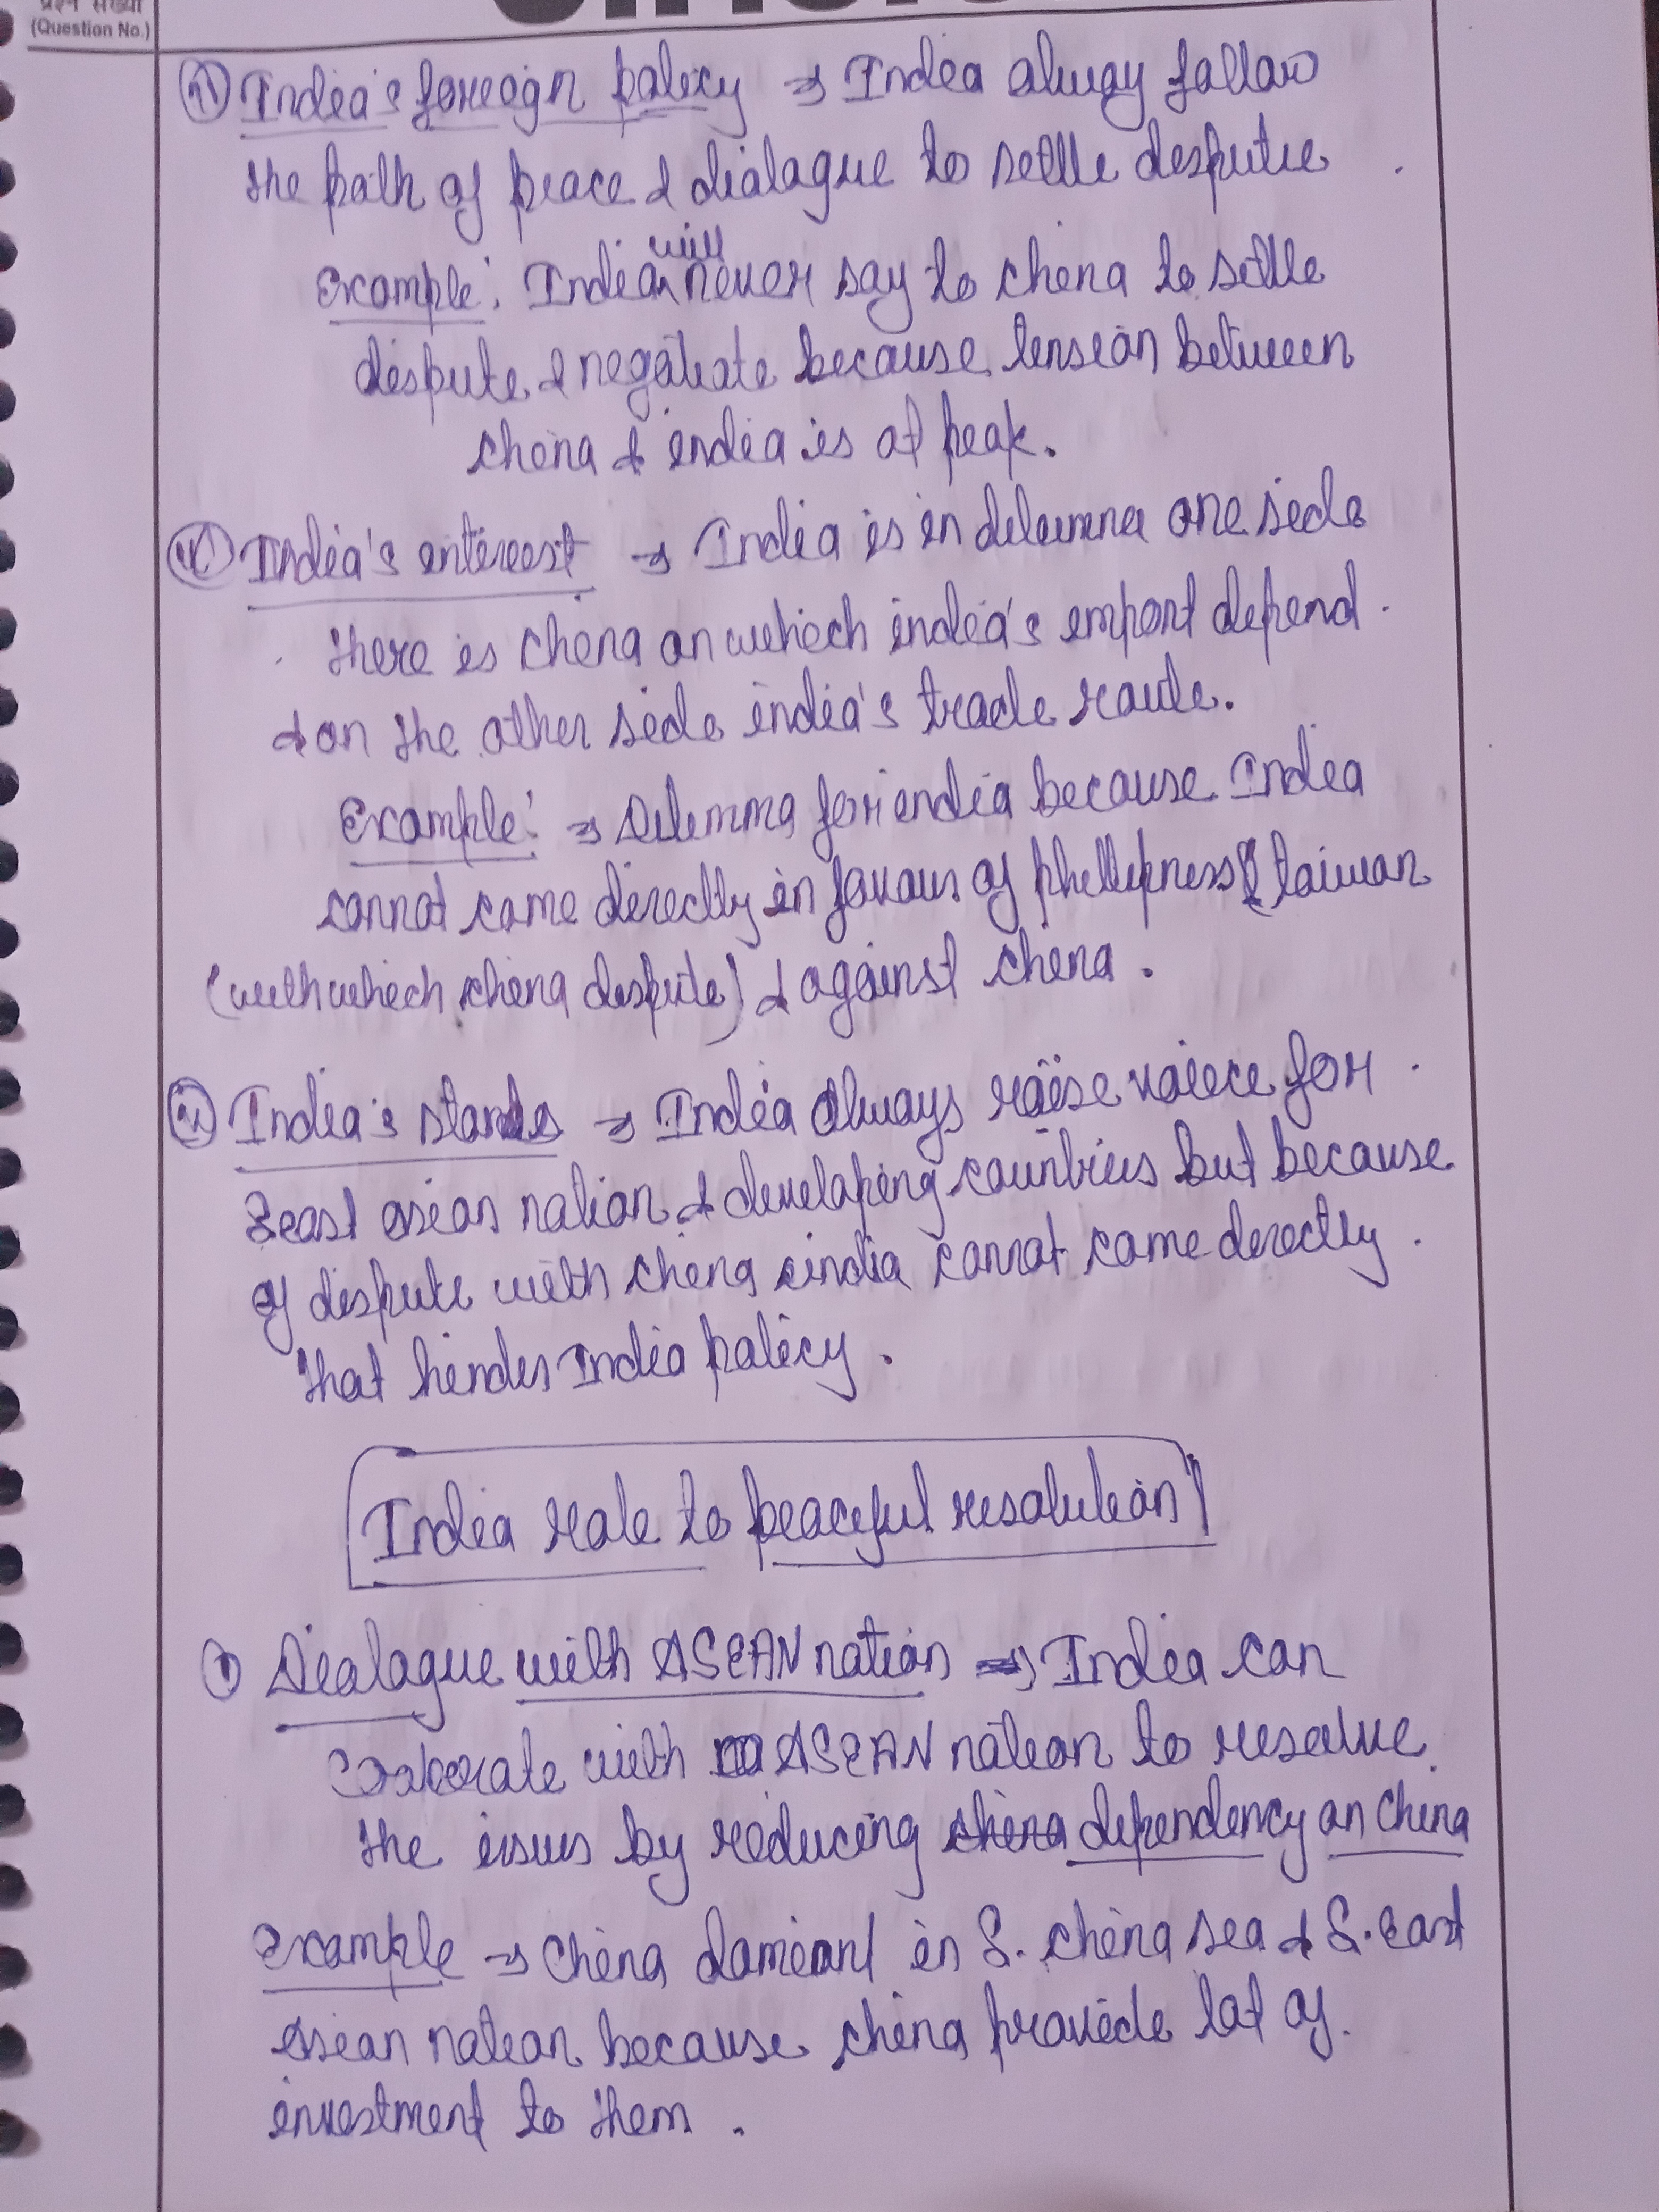 प्रश्न संख्या
(Question No.)
India's foreign policy → India alway follow
the path of peace & dialogue to settle desputie
Example: India will never say to china to settle
dispute & negotiate because tension between
china & india is at peak.
India's interest → India is in dilemma one side
there is china on which india's import depend
& on the other side india's trade route.
Example: → Dilemma for india because India
cannot come directly in favour of phillipness & taiwan
(with which china dispute) & against china.
India's stands → India always raise voiece for
S east asean nation & developing countries but because
of dispute with china india cannot come directly
that hinder India policy.
India role to peaceful resolution
① Dialogue with ASEAN nation → India can
with ASEAN nation to resolve
the issues by reducing china dependency on China
Example → China domiant in S. china sea & S. East
asean nation because china provide lot of
investment to them.